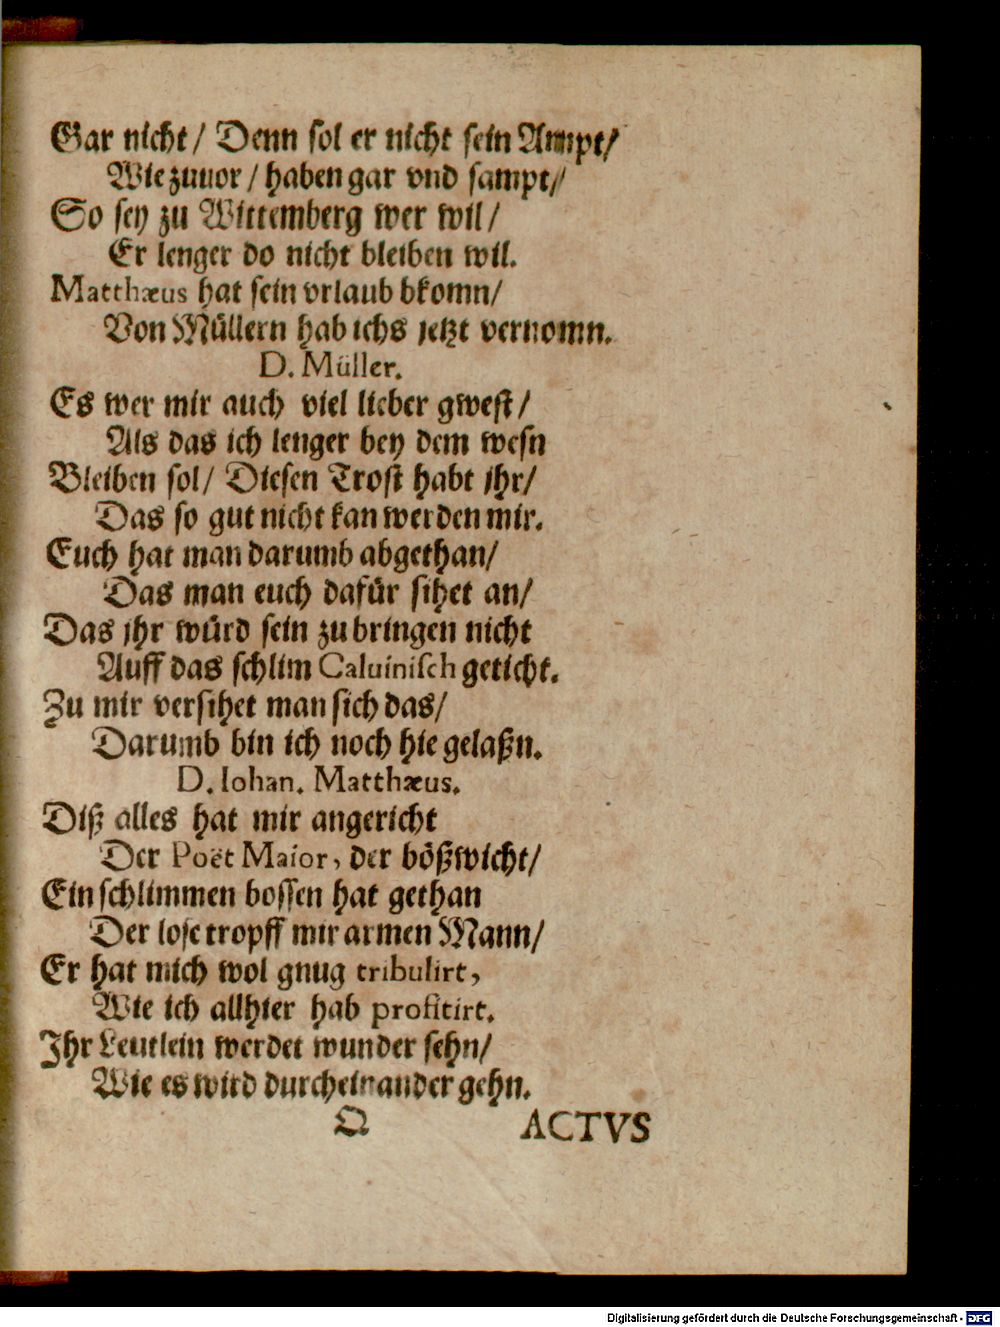 Gar nicht/ Denn sol er nicht sein Ampt/
Wie zuuor/ haben gar vnd sampt/
So sey zu Wittemberg wer wil/
Er lenger do nicht bleiben wil.
Matthæus hat sein vrlaub bkomn/
Von Müllern hab ichs jetzt vernomn.
D. Müller.
Es wer mir auch viel lieber gwest/
Als das ich lenger bey dem wesn
Bleiben sol/ Diesen Trost habt jhr/
Das so gut nicht kan werden mir.
Euch hat man darumb abgethan/
Das man euch dafür sihet an/
Das jhr würd sein zu bringen nicht
Auff das schlim Caluinisch geticht.
Zu mir versihet man sich das/
Darumb bin ich noch hie gelaßn.
D. Iohan. Matthæus.
Diß alles hat mir angericht
Der Poët Maior, der bößwicht/
Ein schlimmen bossen hat gethan
Der lose tropff mir armen Mann/
Er hat mich wol gnug tribulirt,
Wie ich allhier hab profitirt.
Jhr Leutlein werdet wunder sehn/
Wie es wird durcheinander gehn.
Q ACTVS
Digitalisierung gefördert durch die Deutsche Forschungsgemeinschaft - DFG